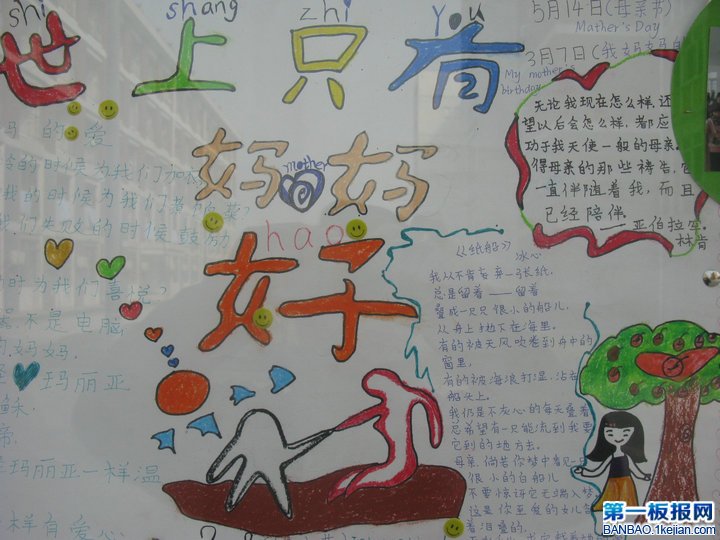 shi shang zhi you
世上只有
妈 mother 妈
hao
好
5月14日(母亲节)
Mather's Day
3月7日(我妈妈的
My mother's
birthday
无论我现在怎么样,还
望以后会怎么样,都应
功于我天使一般的母亲。
得母亲的那些祷告,它
一直伴随着我,而且
已经陪伴。
——亚伯拉罕
林肯
妈 的 爱
的时候为我们加
我的时候为我们煮的菜?
我们失败的时候鼓励
时为我们喜悦?
不是电脑,
的妈妈.
玛丽亚
帝.
玛丽亚一样温
样有爱心
《纸船》
冰心
我从不肯妄弃一张纸,
总是留着——留着
叠成一只只很小的船儿,
从舟上抛下在海里。
有的被天风吹卷到舟中的
窗里,
有的被海浪打湿,沾在
船头上。
我仍是不灰心的每天叠着
总希望有一只能流到我要
它到的地方去。
母亲,倘若你梦中看见一只
很小的白船儿
不要惊讶它无端入梦
这是你至爱的女儿含
着泪叠的
第一板报网
BANBAO.1kejian.com